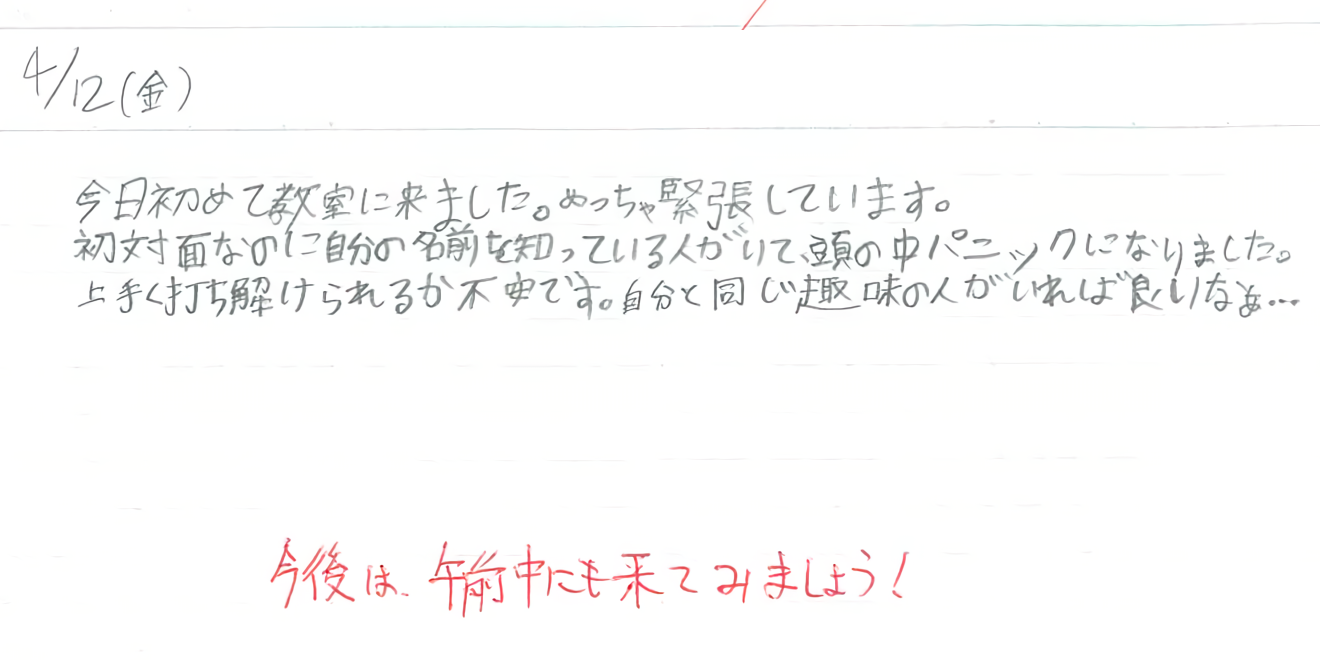 4/12(金)
今日初めて教室に来ました。めっちゃ緊張しています。
初対面なのに自分の名前を知っている人がいて、頭の中パニックになりました。
上手く打ち解けられるか不安です。自分と同じ趣味の人がいれば良いなぁ…
今後は、午前中にも来てみましょう!